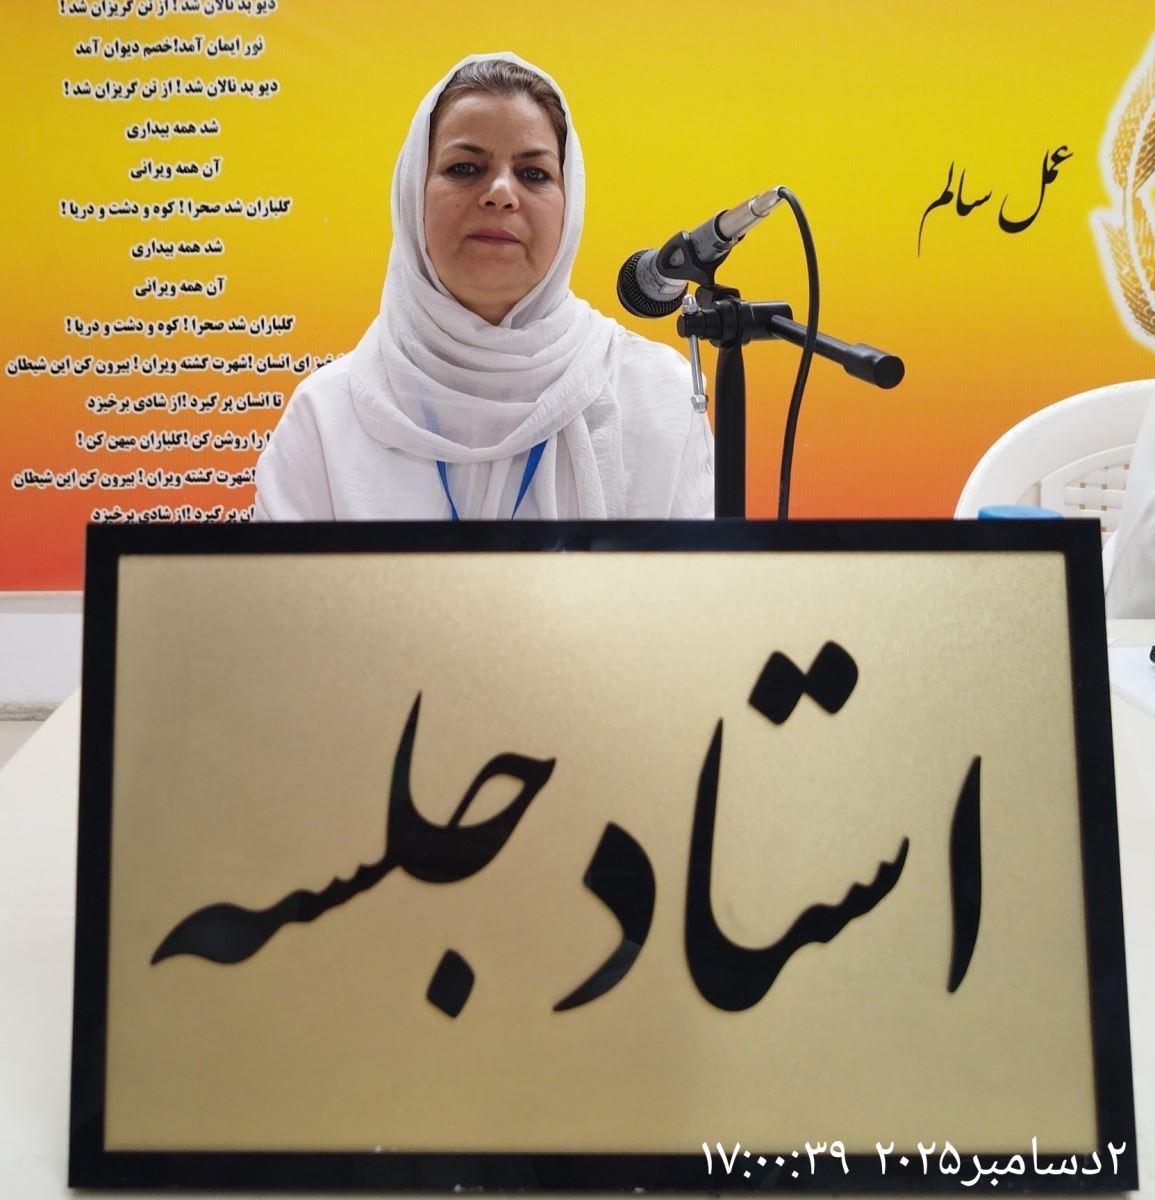 دیو بد نالان شد ! از تن گریزان شد !
نور ایمان آمد!خصم دیوان آمد
دیو بد نالان شد ! از تن گریزان شد !
شد همه بیداری
آن همه ویرانی
گلباران شد صحرا ! کوه و دشت و دریا !
شد همه بیداری
آن همه ویرانی
گلباران شد صحرا ! کوه و دشت و دریا !
ای انسان !شهرت گشته ویران ! بیرون کن این شیطان
تا انسان پر گیرد !از شادی برخیزد
را روشن کن !گلباران میهن کن !
!شهرت گشته ویران ! بیرون کن این شیطان
پر گیرد !از شادی برخیزد
عمل سالم
استاد جلسه
۲دسامبر۲۰۲۵ ۱۷:۰۰:۳۹